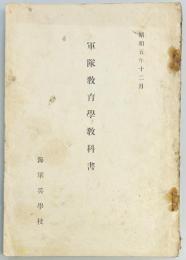 昭和五年十二月
軍隊教育學教科書
海軍兵學校